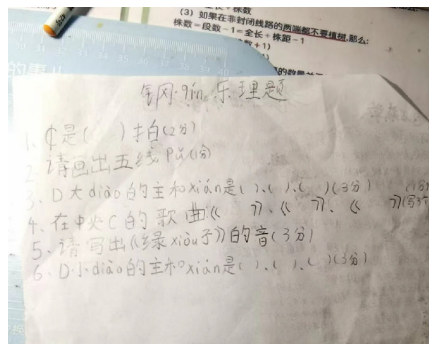 长÷株数
(3) 如果在非封闭线路的两端都不要植树,那么:
株数=段数-1=全长÷株距-1
钢·qin 乐理题
1、¢是( )拍(2分)
2、请画出五线PU(1分)
3、D大diào的主和xián是( )、( )、( )(3分)
4、在中央C的歌曲《 》、《 》、《 》(写3个
5、请写出《绿xiù子》的音(3分)
6、D小diào的主和xián是( )、( )、( )(3分)